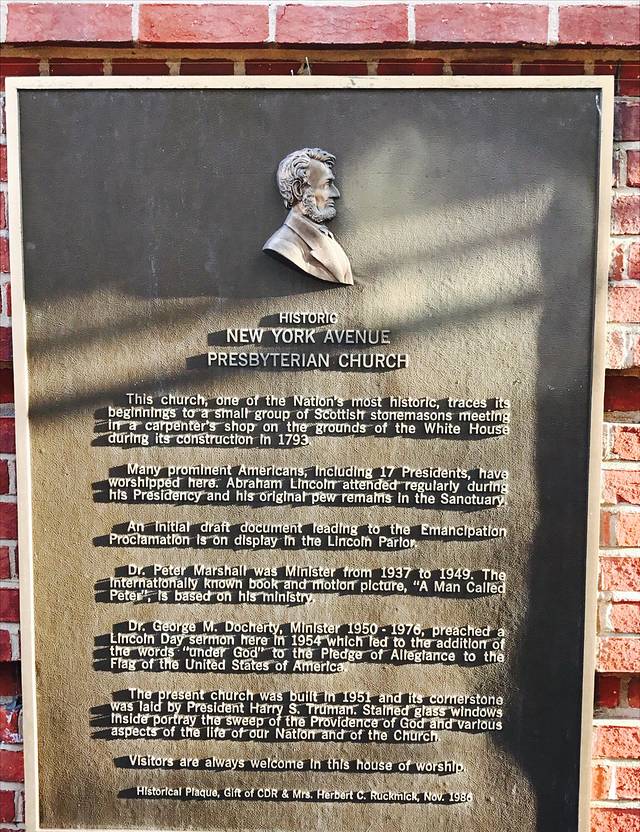 HISTORIC
NEW YORK AVENUE
PRESBYTERIAN CHURCH
This church, one of the Nation's most historic, traces its
beginnings to a small group of Scottish stonemasons meeting
in a carpenter's shop on the grounds of the White House
during its construction in 1793.
Many prominent Americans, including 17 Presidents, have
worshipped here. Abraham Lincoln attended regularly during
his Presidency and his original pew remains in the Sanctuary.
An initial draft document leading to the Emancipation
Proclamation is on display in the Lincoln Parlor.
Dr. Peter Marshall was Minister from 1937 to 1949. The
internationally known book and motion picture, "A Man Called
Peter", is based on his ministry.
Dr. George M. Docherty, Minister 1950 - 1976, preached a
Lincoln Day sermon here in 1954 which led to the addition of
the words "under God" to the Pledge of Allegiance to the
Flag of the United States of America.
The present church was built in 1951 and its cornerstone
was laid by President Harry S. Truman. Stained glass windows
inside portray the sweep of the Providence of God and various
aspects of the life of our Nation and of the Church.
Visitors are always welcome in this house of worship.
Historical Plaque, Gift of CDR & Mrs. Herbert C. Ruckmick, Nov. 1986